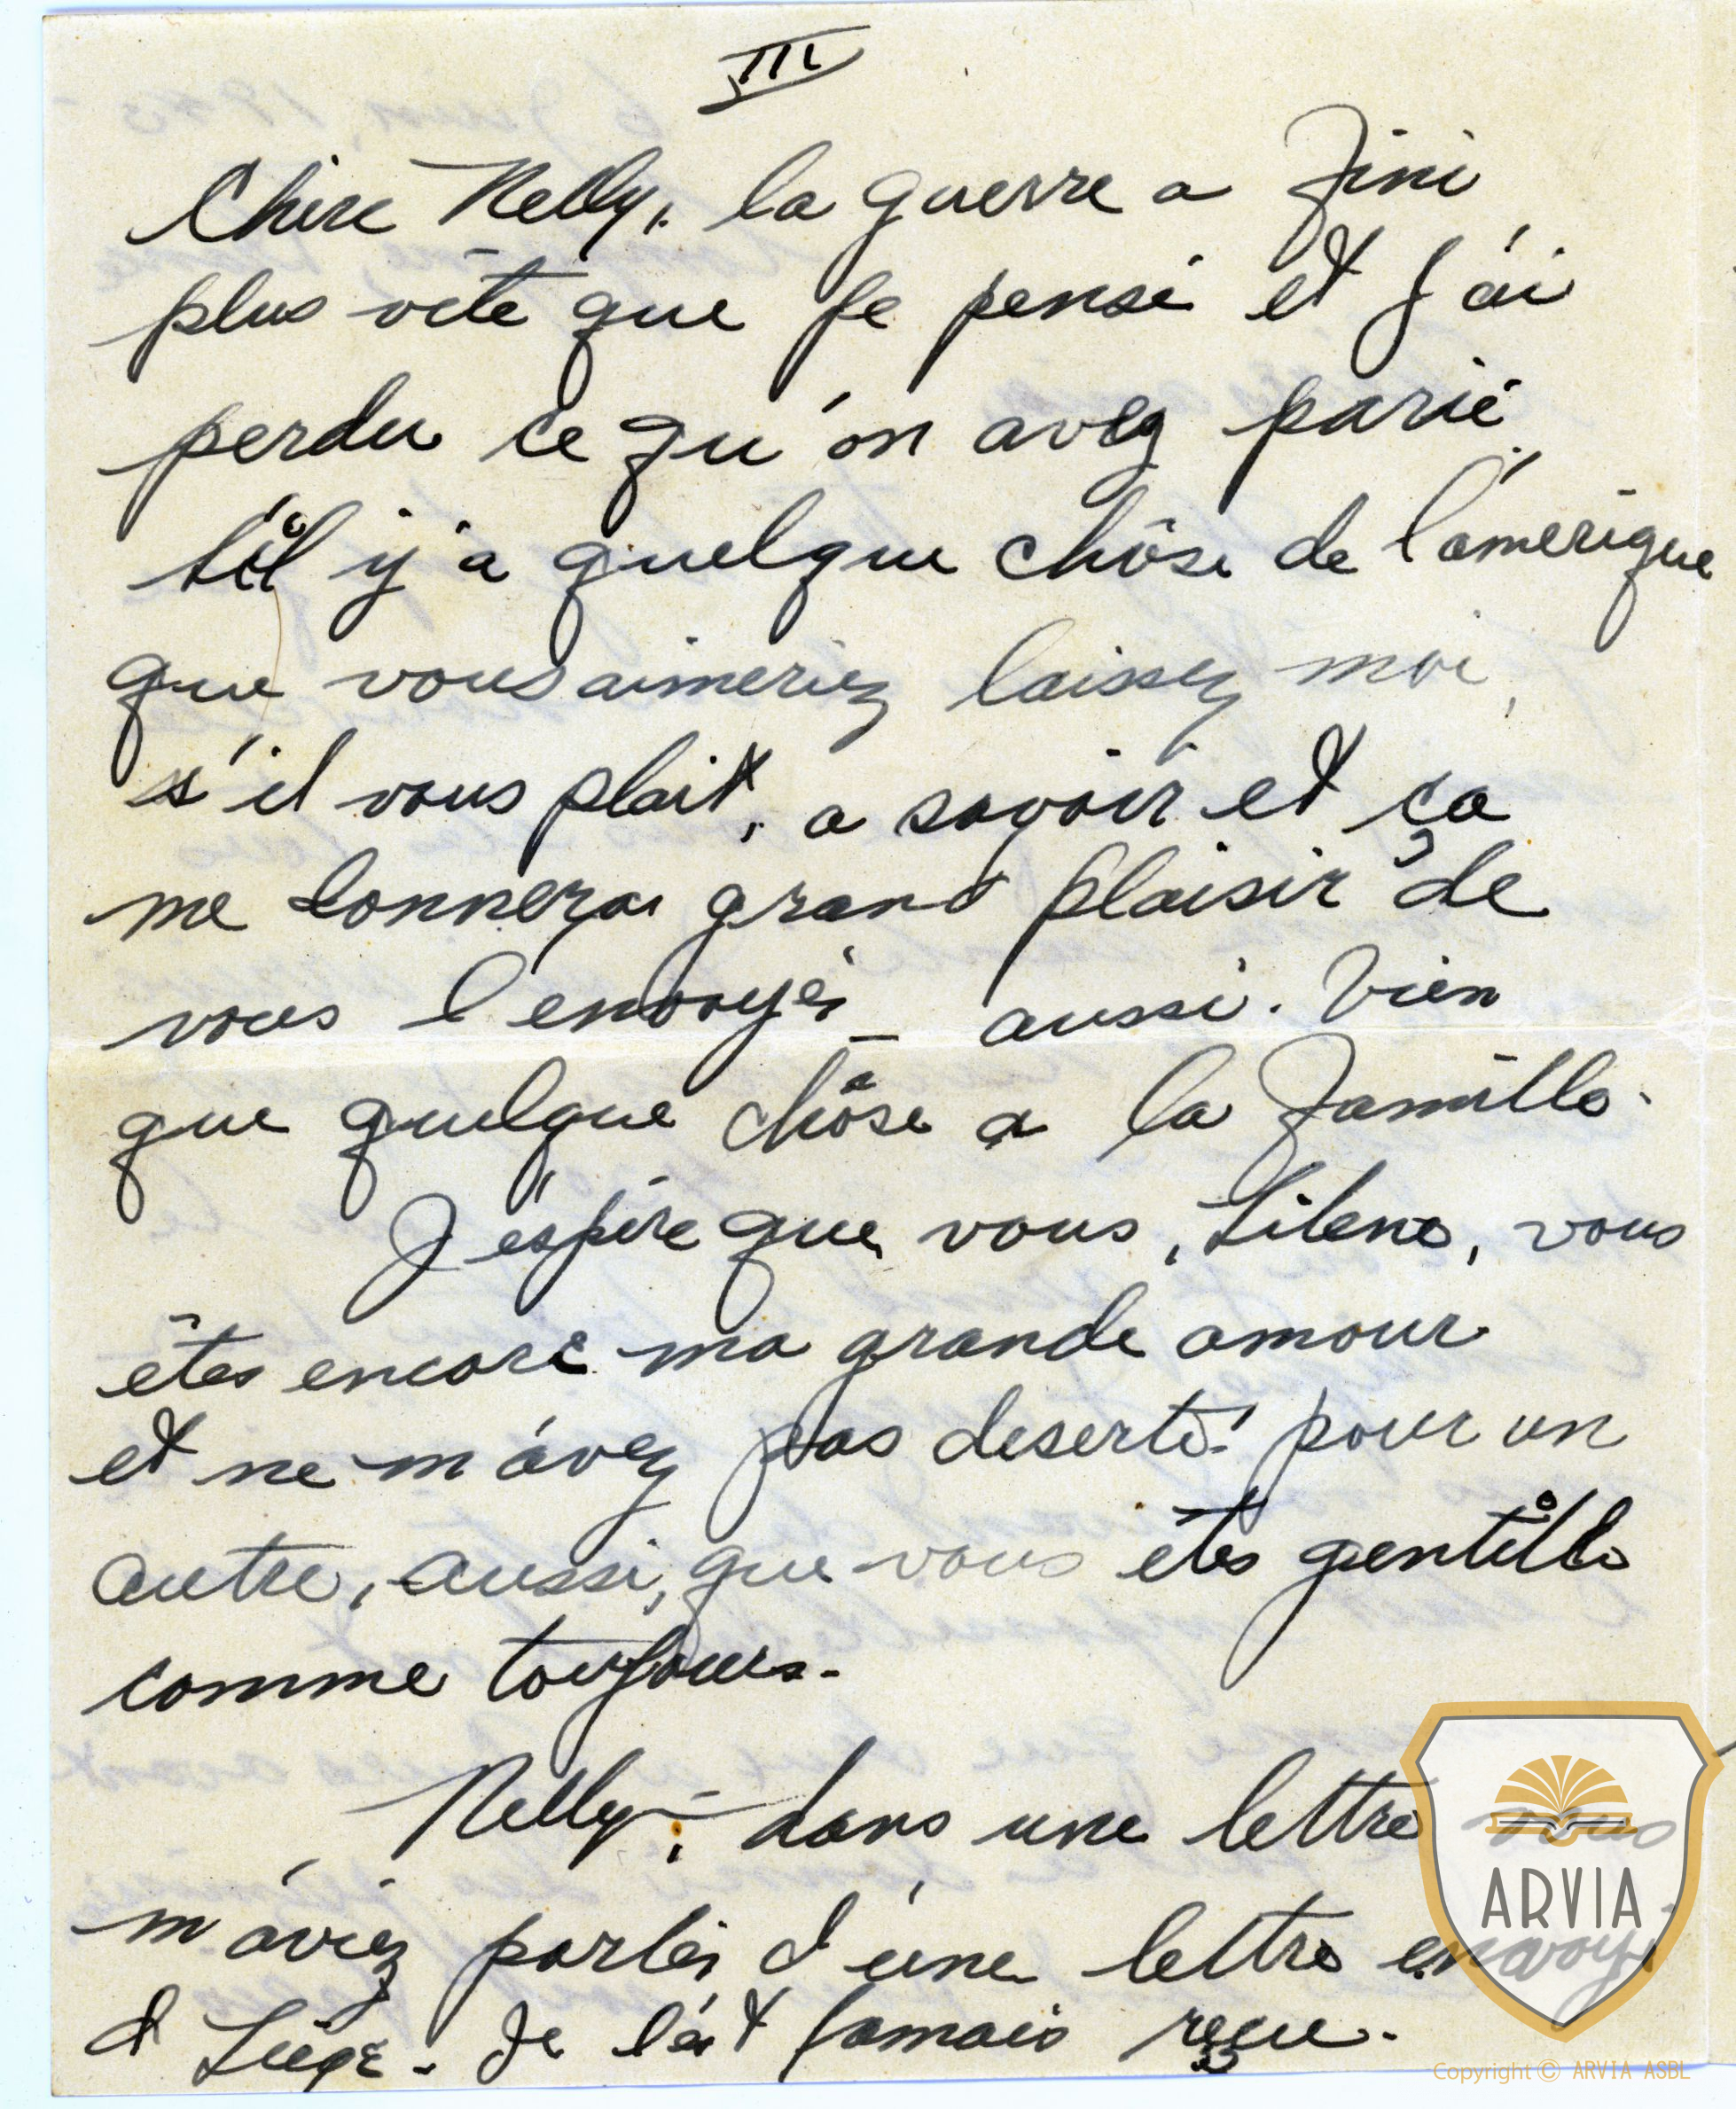 III
Chere Nelly, la guerre a fini
plus vite que je pensé et j'ai
perdu ce qu'on avez parié.
S'il y'a quelque chôse de l'amerique
que vous aimeriez laissez moi,
s'il vous plait, a savoir et ça
me donnera grand plaisir de
vous l'envoyér aussi. Bien
que quelque chôse a la famille.
J'éspére que vous, Lilene, vous
êtes encore ma grande amour
et ne m'avez pas deserté! pour un
autre, aussi, que vous êtes gentille
comme toujours.
Nelly, dans une lettre vous
m'aviez parlér d'une lettre envoyé
d Liége. Je l'ait jamais reçue.
ARVIA
Copyright © ARVIA ASBL